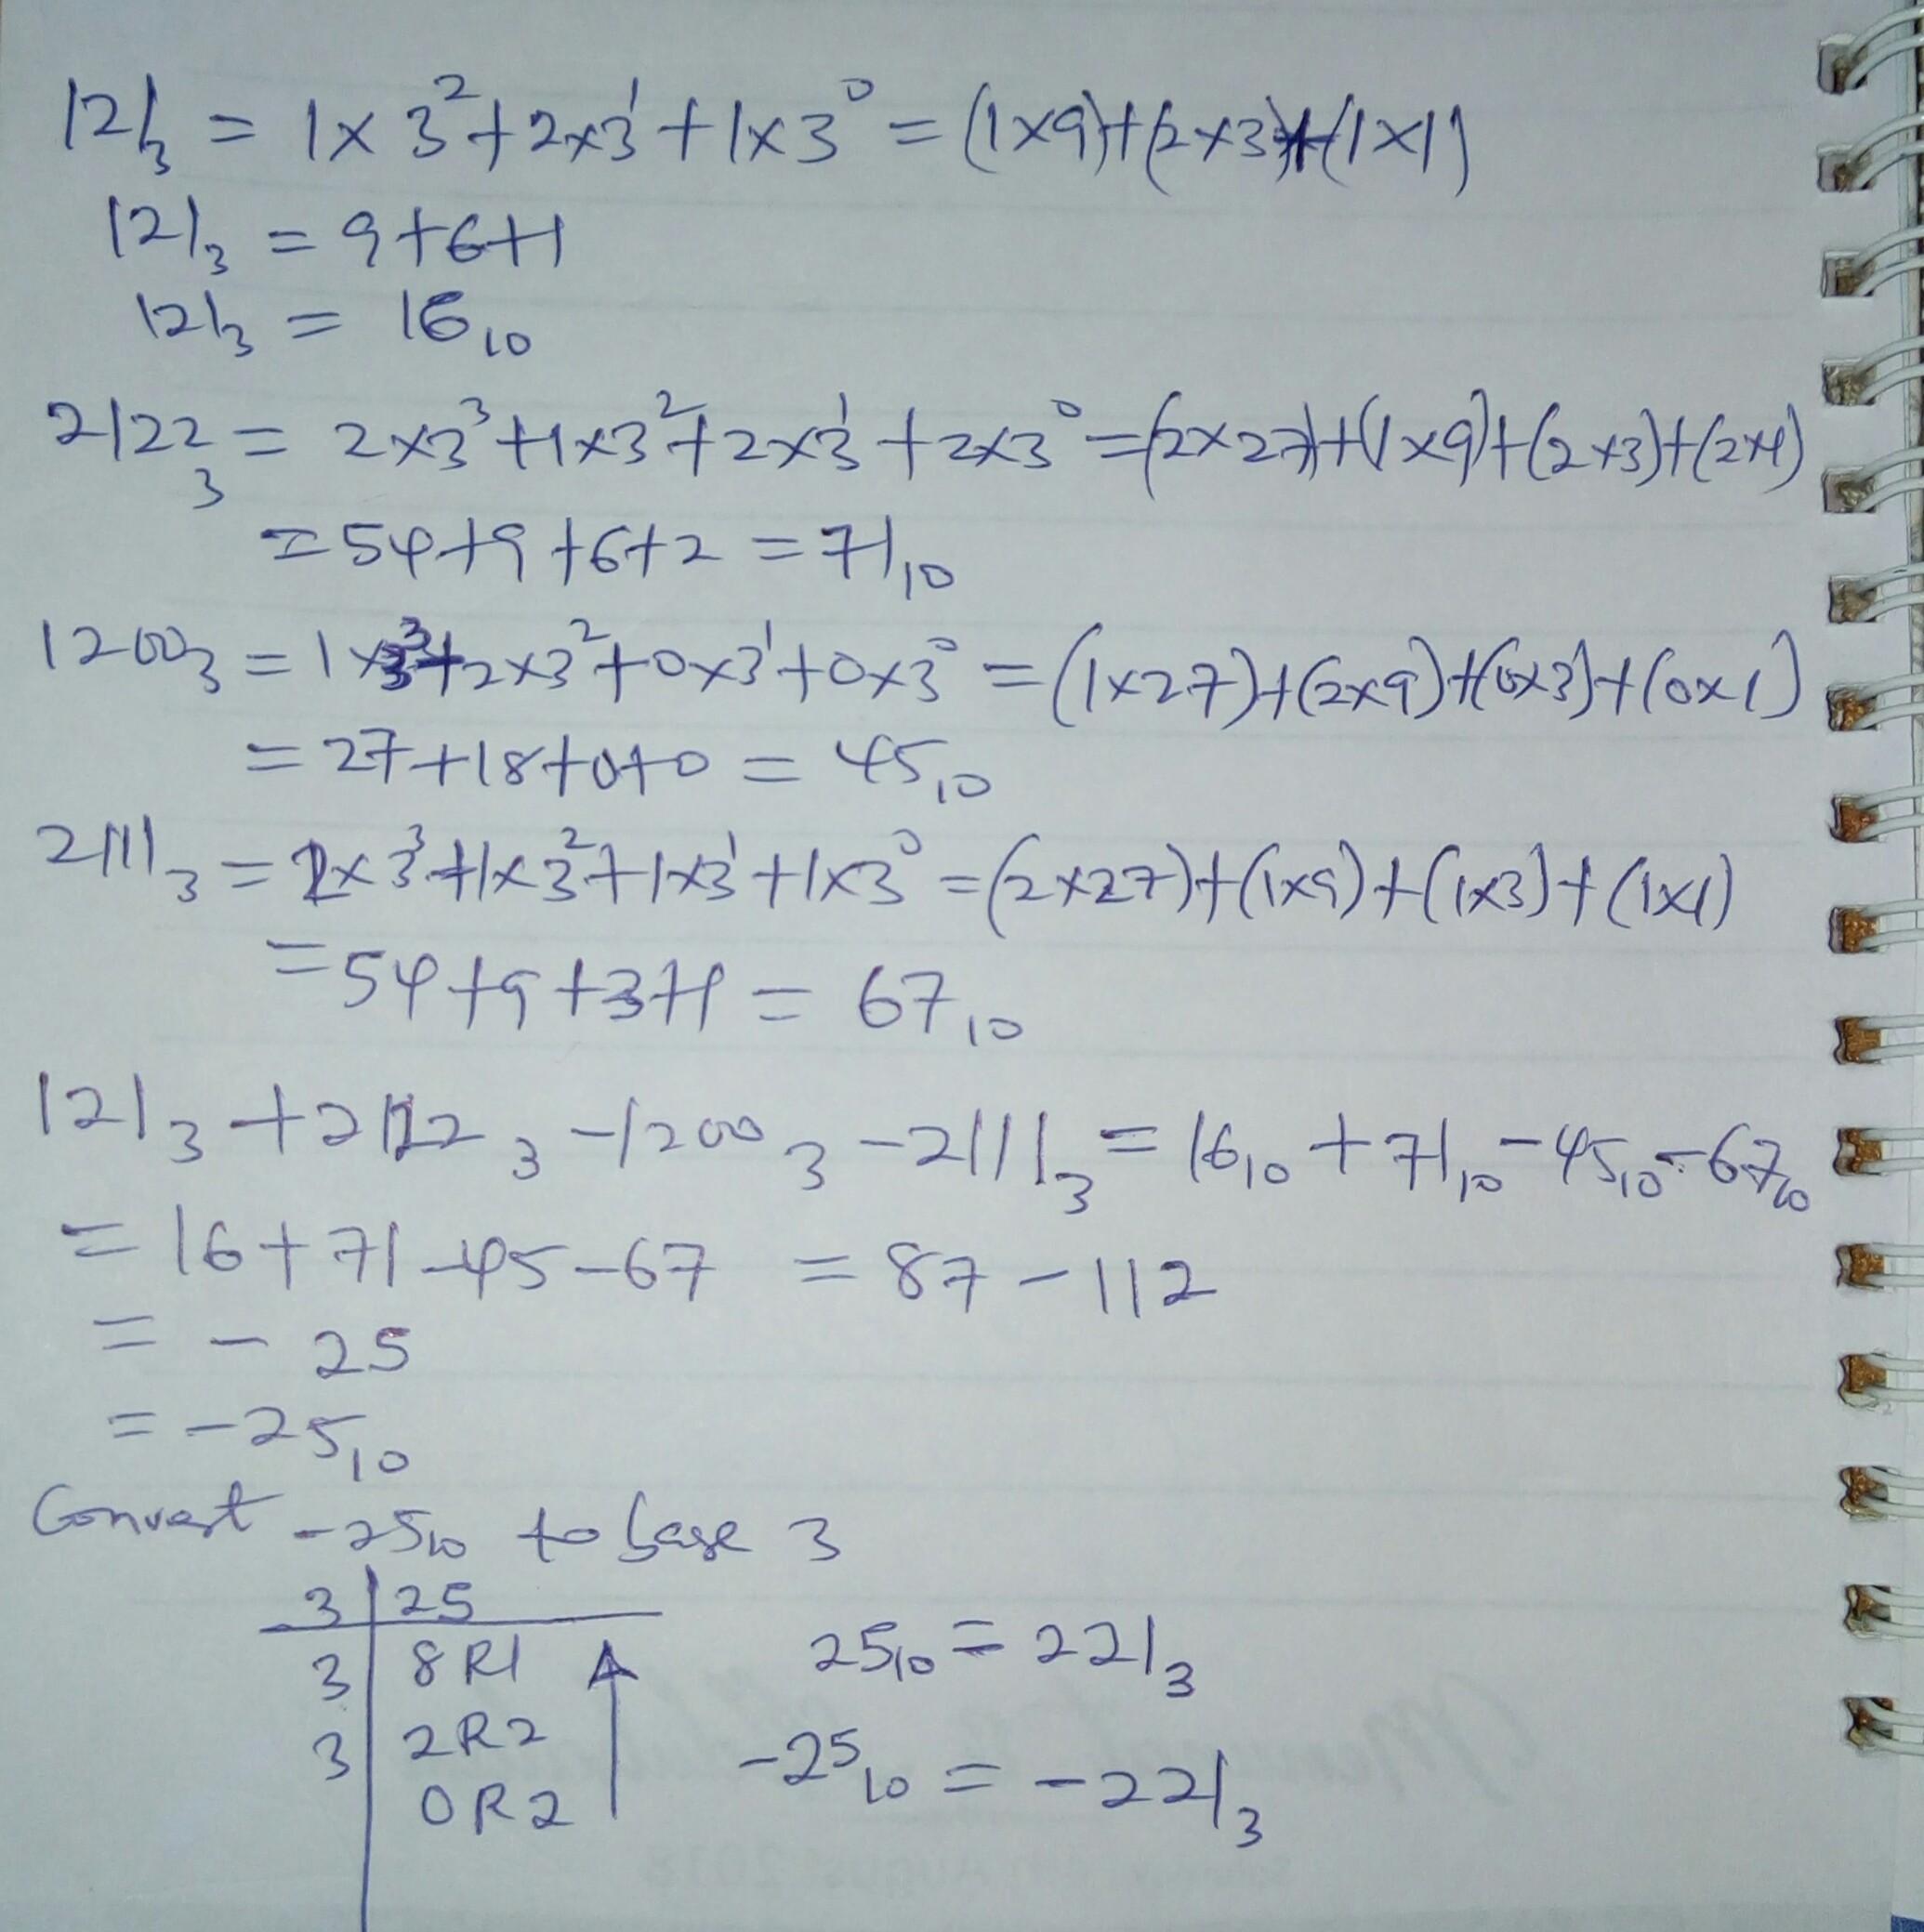 121₃ = 1x3²+2x3¹+1x3⁰ = (1x9)+(2x3)+(1x1)
121₃ = 9+6+1
121₃ = 16₁₀
2122₃ = 2x3³+1x3²+2x3¹+2x3⁰ = (2x27)+(1x9)+(2x3)+(2x1)
= 54+9+6+2 = 71₁₀
1200₃ = 1x3³+2x3²+0x3¹+0x3⁰ = (1x27)+(2x9)+(0x3)+(0x1)
= 27+18+0+0 = 45₁₀
2111₃ = 2x3³+1x3²+1x3¹+1x3⁰ = (2x27)+(1x9)+(1x3)+(1x1)
= 54+9+3+1 = 67₁₀
121₃ + 2122₃ - 1200₃ - 2111₃ = 16₁₀ + 71₁₀ - 45₁₀ - 67₁₀
= 16+71-45-67 = 87-112
= - 25
= -25₁₀
Convert -25₁₀ to base 3
3 | 25
3 | 8 R1
3 | 2 R2
0 R2
25₁₀ = 221₃
-25₁₀ = -221₃